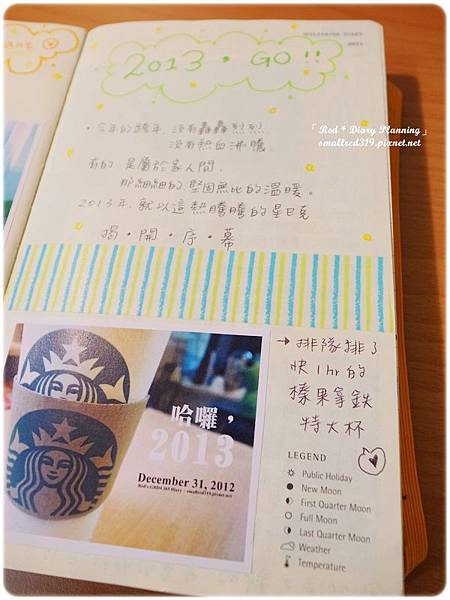 MOLESKINE DIARY
2013
2013，GO!!
「Red * Diary Planning」
smallred319.pixnet.net
• 今年的跨年，沒有轟轟烈烈
沒有熱血沸騰，
有的，是屬於家人間，
那細細的堅固無比的溫暖。
2013年，就以這熱騰騰的星巴克
揭・開・序・幕
→ 排隊排了
快1hr的
榛果拿鐵
特大杯
哈囉，
2013
December 31, 2012
LEGEND
Public Holiday
New Moon
First Quarter Moon
Full Moon
Last Quarter Moon
Weather
Temperature